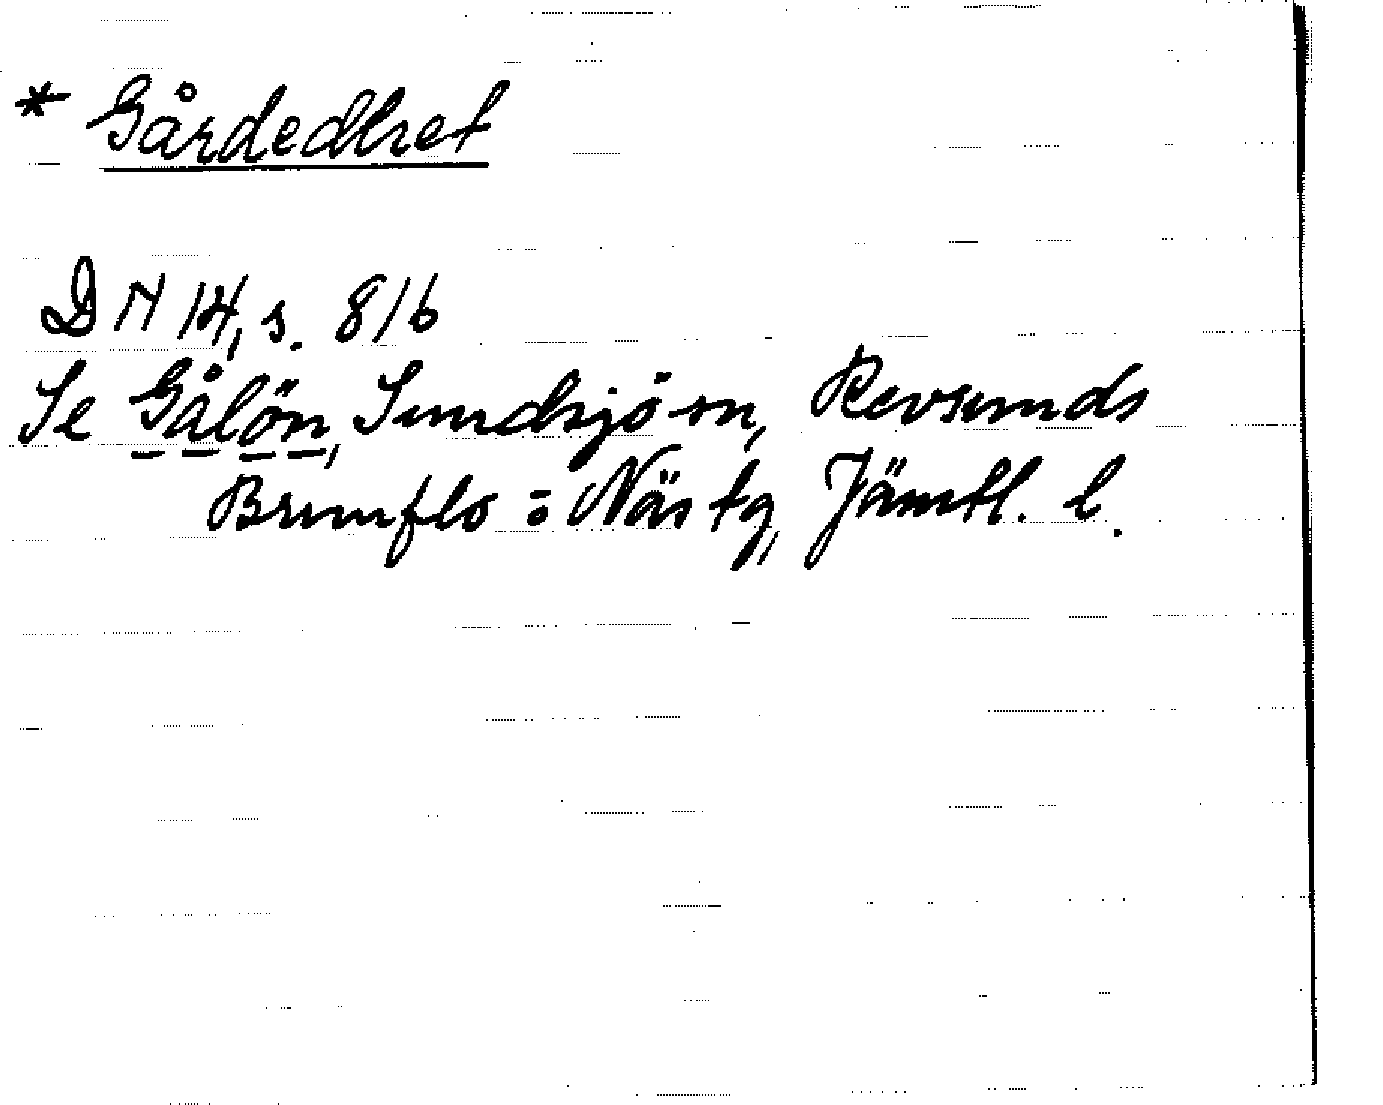 * Gårdedhet
DN 14, s. 816
Se Gålön, Sundsjö sn, Revsunds
Brunflo = Näs tg, Jämtl. l.